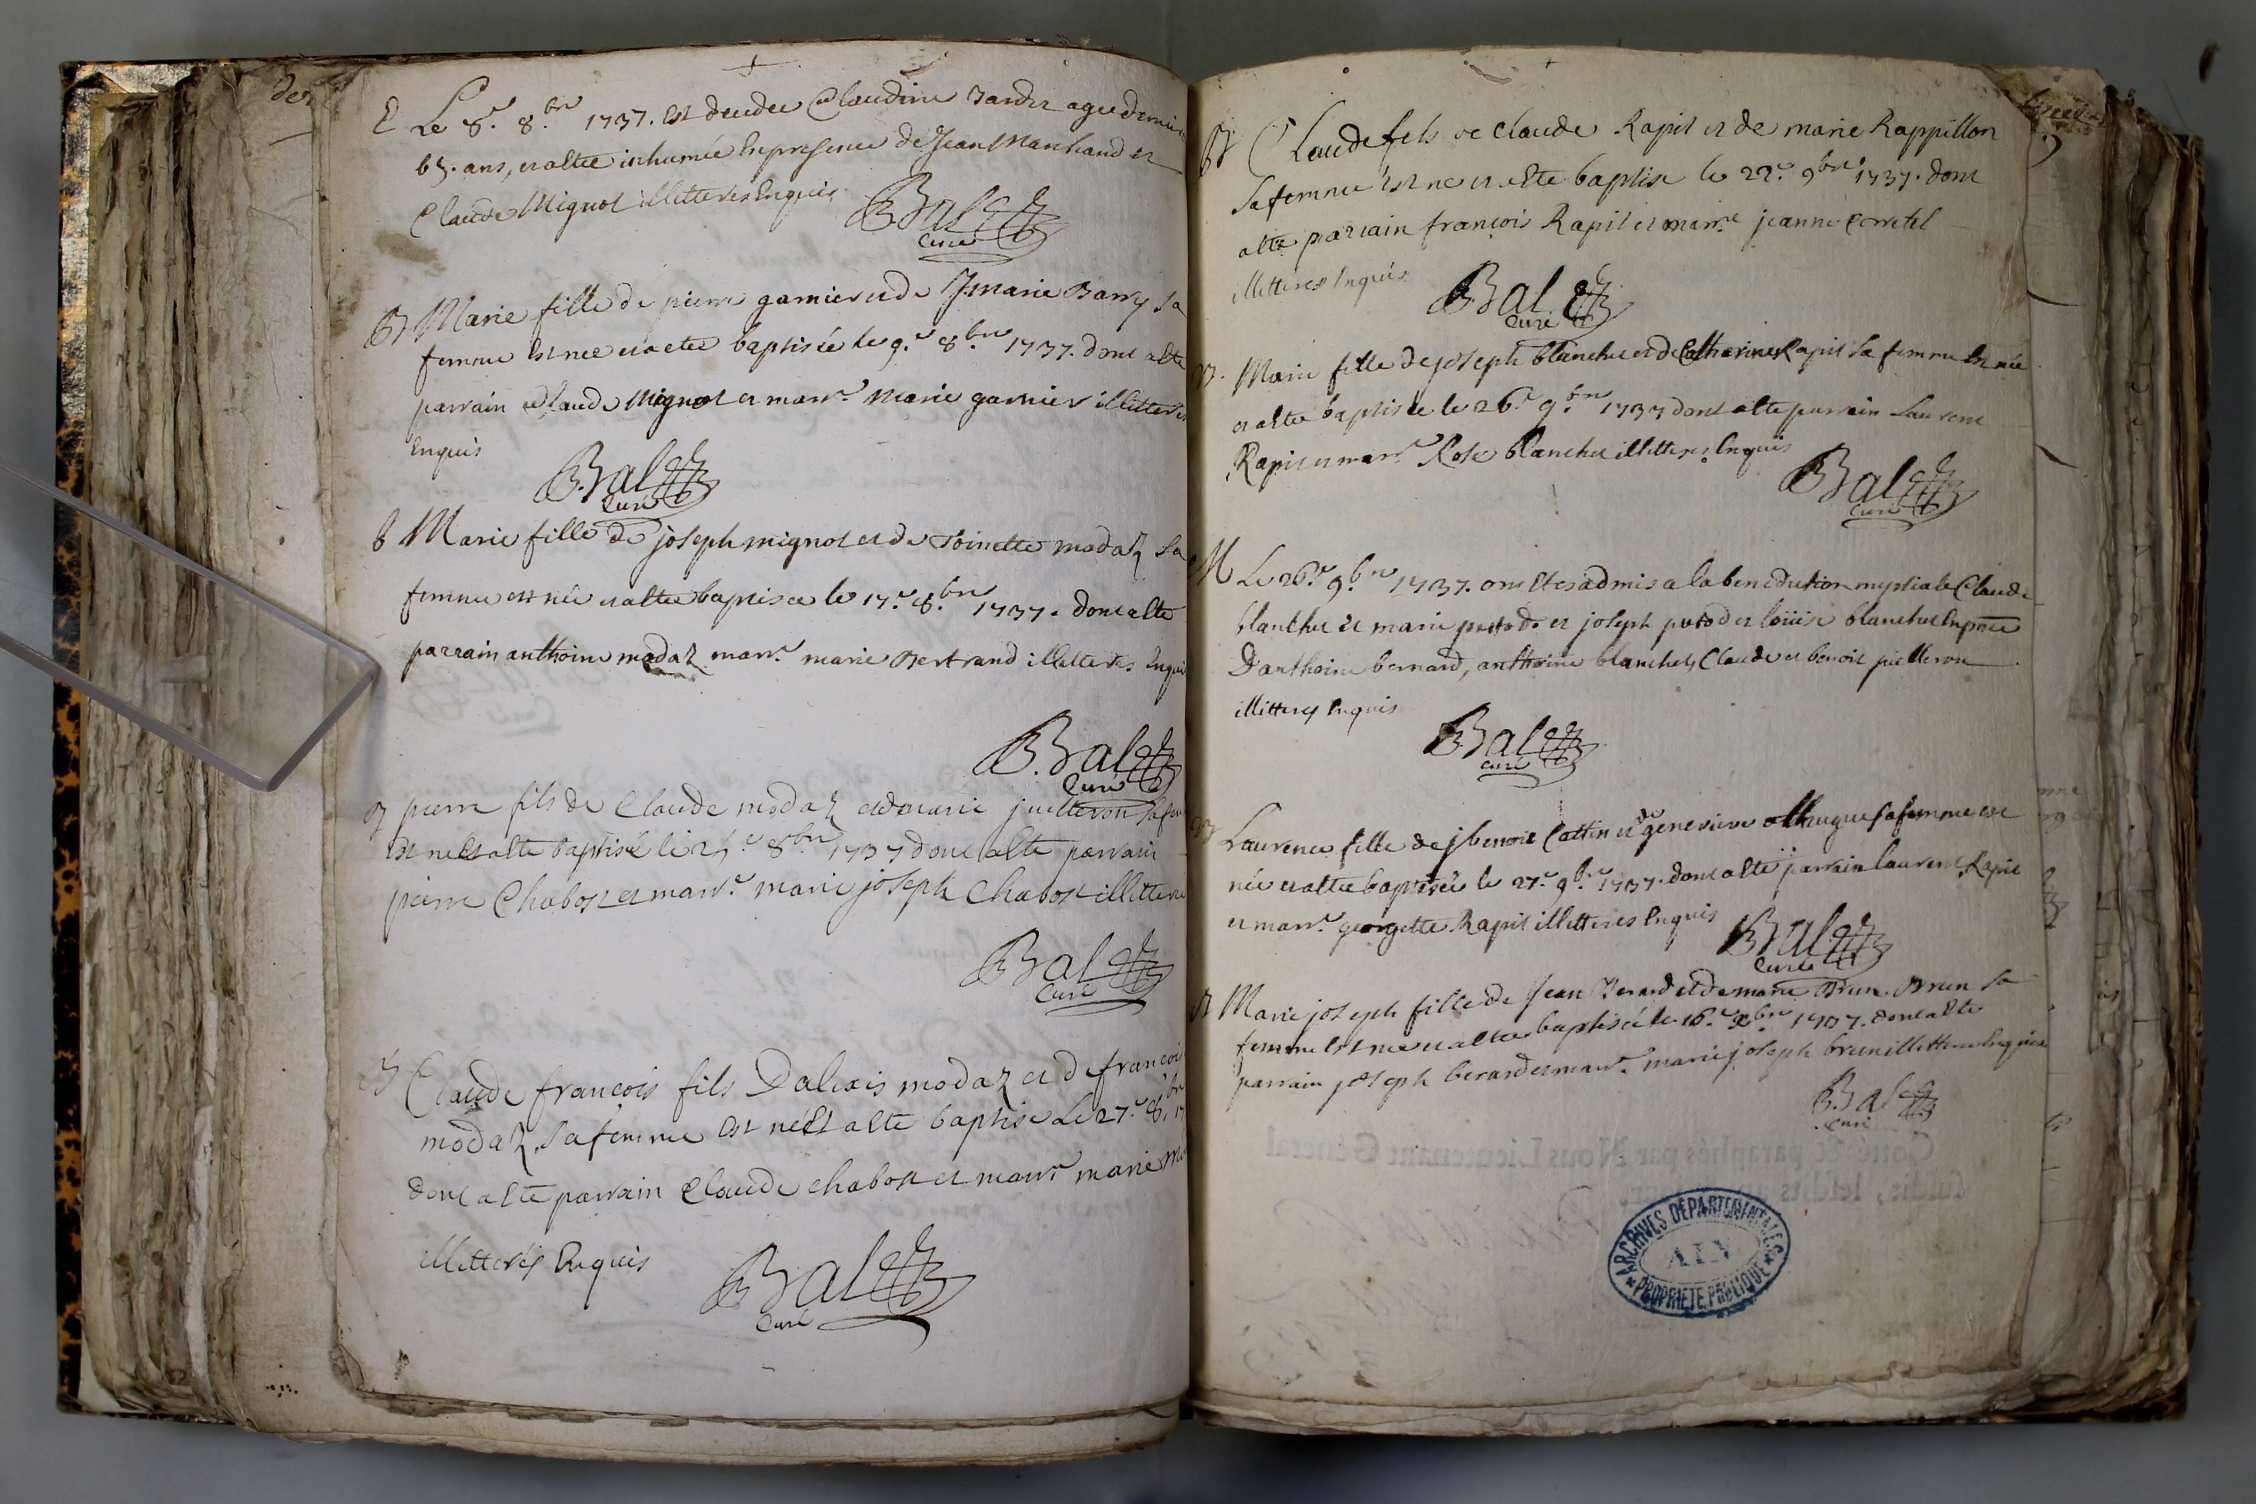 E Le 8.e 8.bre 1737. est decedee Claudine agee denviron
65. ans, et a ete inhumée En presence de Jean Marchand et
Claude Mignot illitteres Enquis
Balet
Curé
B Marie fille de pierre garnier et de J. marie Barry sa
femme est nee et a ete baptisée le 9.e 8.bre 1737. dont a ete
parrain claude Mignot et marr.e Marie garnier illitteres
Enquis
Balet
Curé
B Marie fille de joseph mignot et de Toinette modaz sa
femme est née et a ete baptisee le 17.e 8.bre 1737. dont a ete
parrain anthoine modaz marr.e marie Bertrand illitteres Enquis
Balet
Curé
B pierre fils de Claude modaz et de marie juilleron sa fem
est né et a ete baptisé le 8.bre 1737 dont a ete parrain
pierre Chabost et marr.e marie joseph Chabost illittere
Balet
Curé
B Claude francois fils Dalexis modaz et de francoi
modaz sa femme est né et a ete baptise Le 27.e 8.bre 17
dont a ete parrain Claude chabost et marr.e marie Mo
illitterés Enquis
Balet
Curé
B Claude fils de claude Rapit et de marie Rappillon
sa femme est ne et a ete baptise le 22.e 9.bre 1737. dont
a ete parrain françois Rapit et marr.e jeanne
illitteres Enquis
Balet
Curé
B. Marie fille de joseph blanchet et de Catherine Rapit sa femme est née
et a ete baptisée le 26.e 9.bre 1737 dont a ete parrain Laurent
Rapit et marr.e Rose blanchet illitteres Enquis
Balet
Curé
M Le 26.e 9.bre 1737. ont etes admis a la benediction nuptiale Claude
blanchet et marie putod et joseph putod et loüise blanchet En pnce
D'anthoine bernard, anthoine blanchet, Claude et benoit juilleron
illitteres Enquis
Balet
Curé
B Laurence fille de j benoit Cattin et de genevieve sa femme est
née et a ete baptisée le 27.e 9.bre 1737. dont a ete parrain laurent Rapit
et marr.e georgette Rapit illitteres Enquis
Balet
Curé
B Marie joseph fille de Jean Berard et de marie Brun sa
femme est nee et a ete baptisée le 16.e 1737. dont a ete
parrain joseph berard et marr.e marie joseph brun illitteres Enquis
Balet
Curé
ARCHIVES DEPARTEMENTALES
AIN
PROPRIETE PUBLIQUE